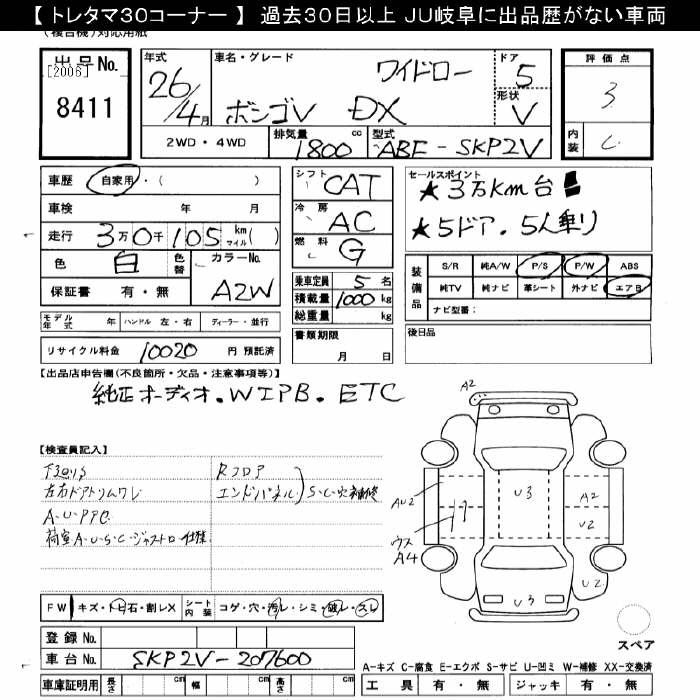 【 トレタマ30コーナー 】 過去30日以上 JU岐阜に出品歴がない車両
(複合機)対応用紙
出品No.
[2006]
8411
年式
26/4月
車名・グレード
ワイドロー
ボンゴV DX
ドア
5
形状
V
評価点
3
内装
C
2WD・4WD
排気量
1800 cc
型式
ABF-SKP2V
車歴 自家用・( )
車検 年 月
走行 3万0千105 km マイル( )
色 白 色替 カラーNo.
A2W
保証書 有・無
モデル年式 年 ハンドル 左・右 ディーラー・並行
リサイクル料金 10020 円 預託済
シフト CAT
冷房 AC
燃料 G
乗車定員 5 名
積載量 1000 kg
総重量 kg
書類期限
月 日
セールスポイント
★3万km台
★5ドア.5人乗り
装備品
S/R 純A/W P/S P/W ABS
純TV 純ナビ 革シート 外ナビ エアB
ナビ型番:
後日品
【出品店申告欄(不良箇所・欠品・注意事項等)】
純正オーディオ.WIPB.ETC
【検査員記入】
左右ドアトリムワレ
A-U-PPC
Rフロア
エンドパネル
S-C-穴補修
A2
U3
A2
AU2
U2
ウス
A4
U2
U3
スペア
FW キズ・トビ石・割レX シート内装 コゲ・穴・汚レ・シミ・破レ・スレ
登録No.
車台No. SKP2V-207600
車庫証明用 長さ cm 幅 cm 高さ cm
A-キズ C-腐食 E-エクボ S-サビ U-凹ミ W-補修 XX-交換済
工具 有・無 ジャッキ 有・無